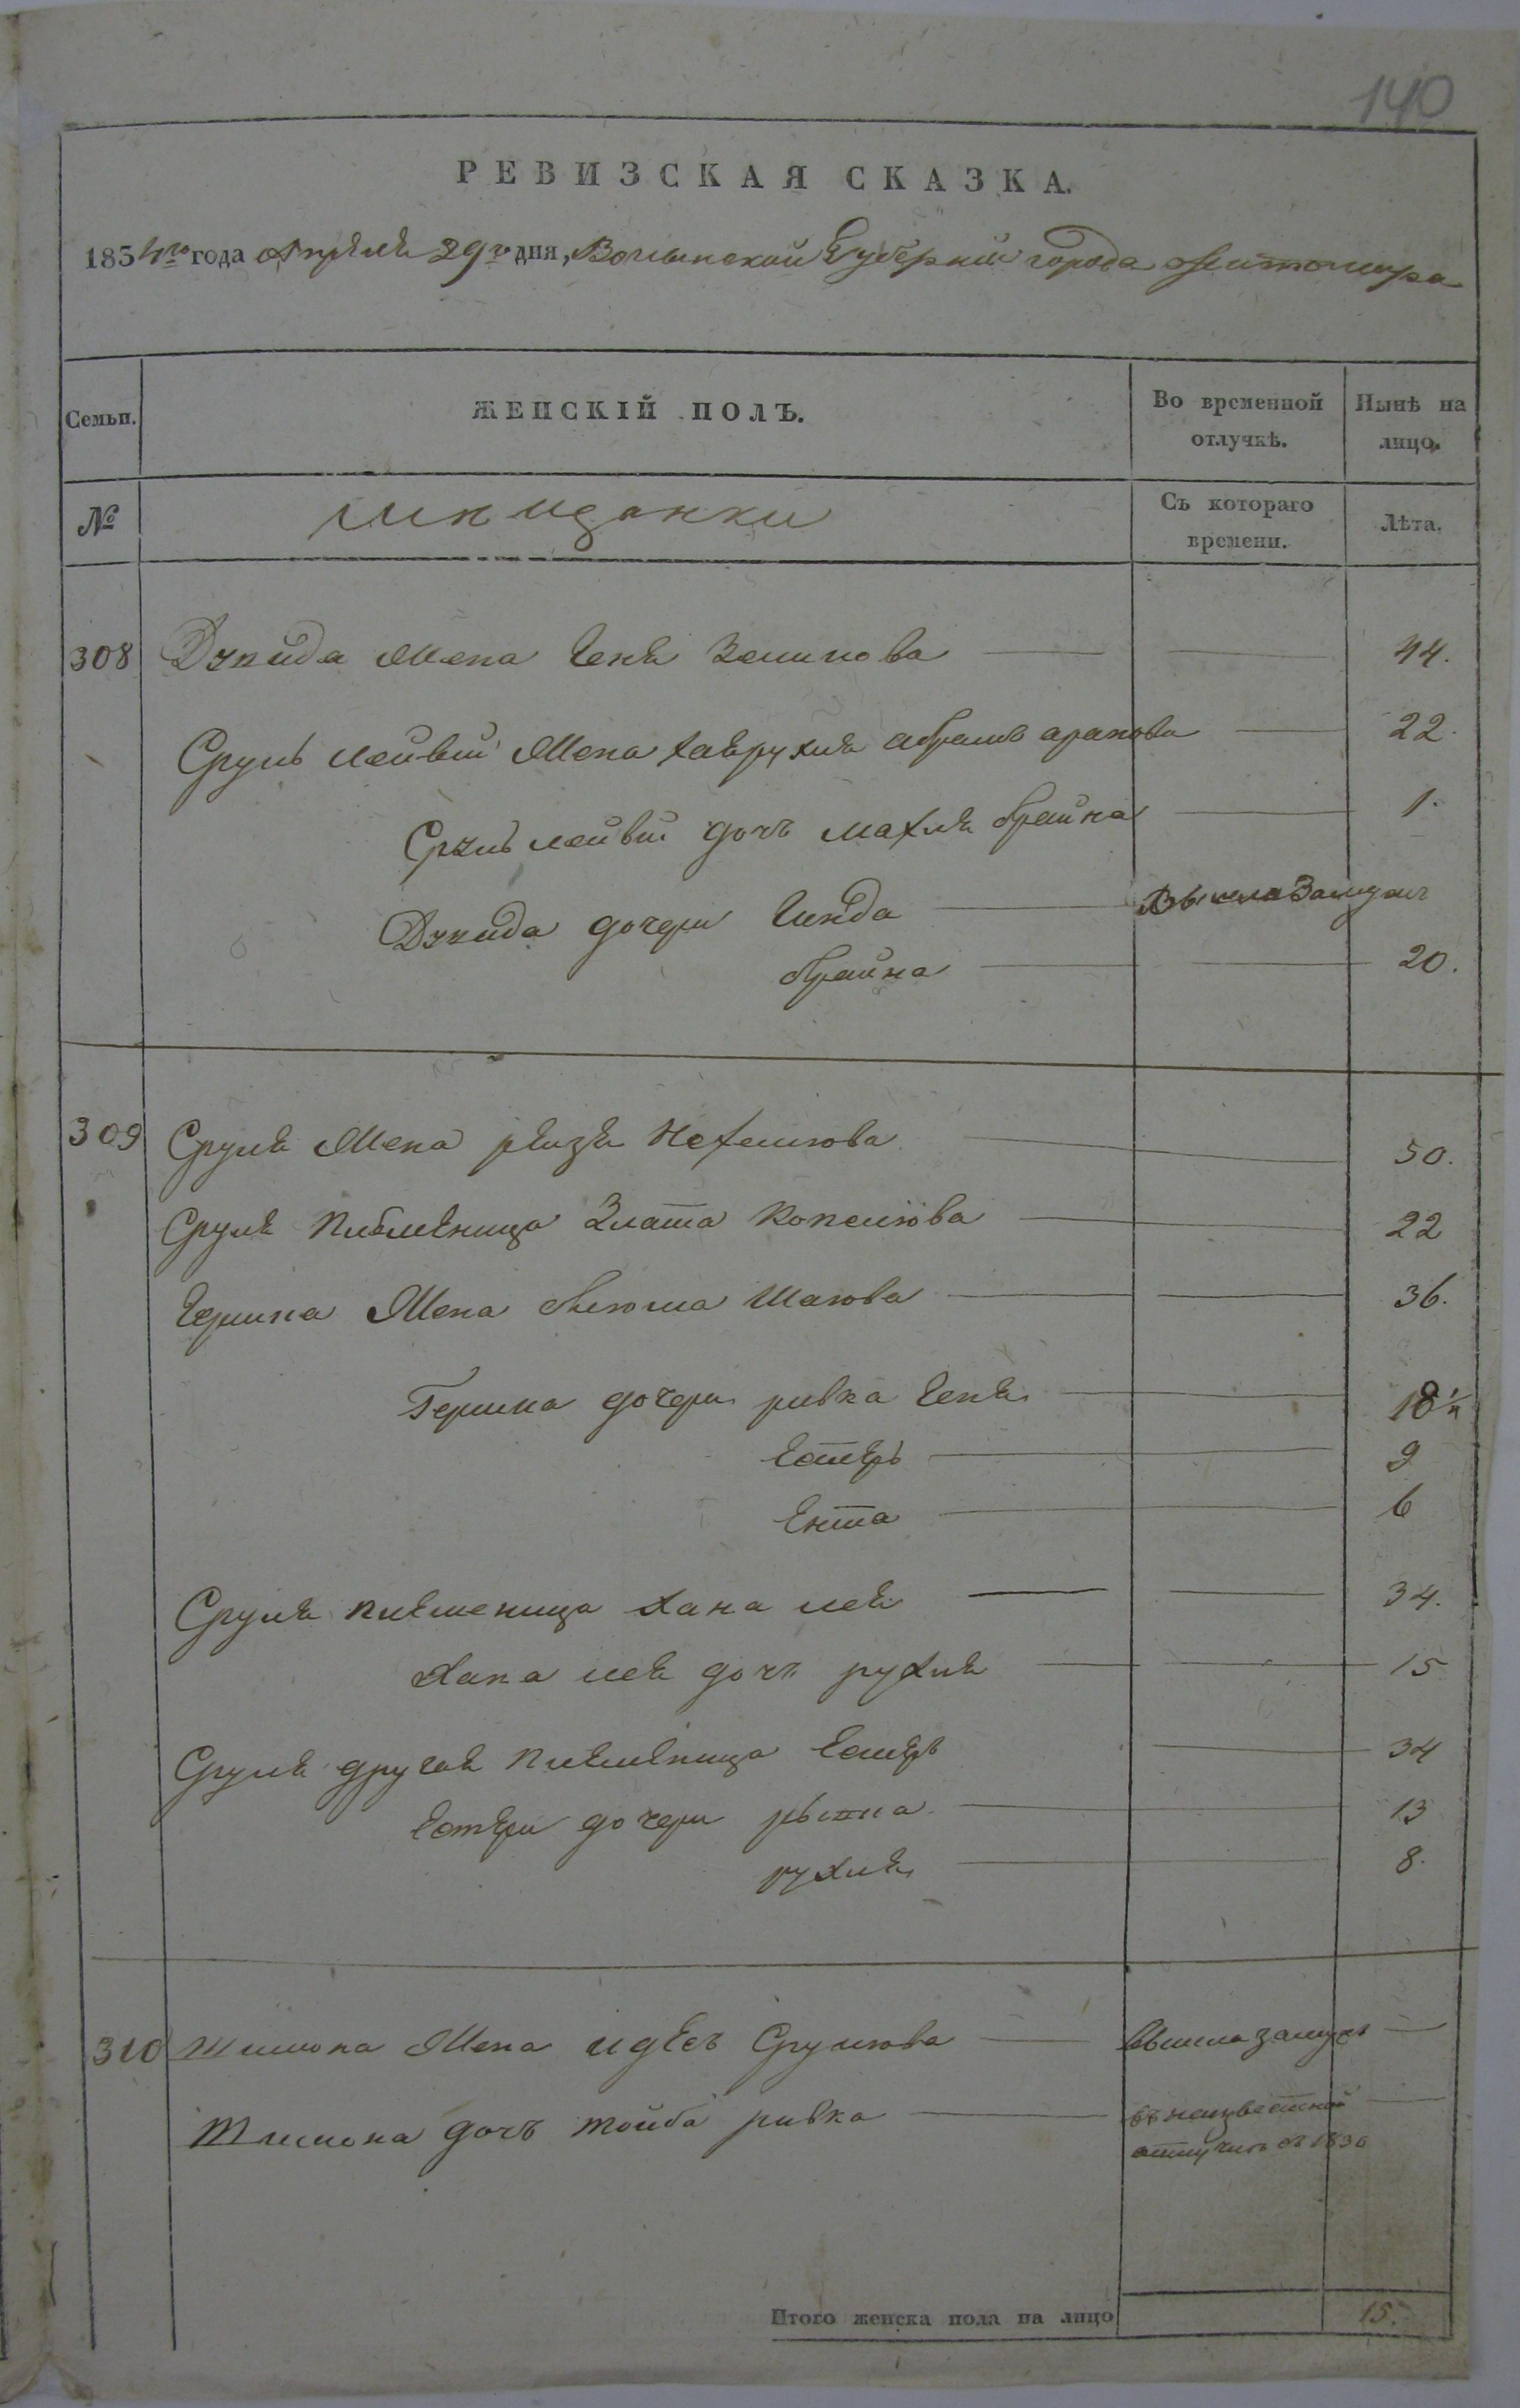 140
РЕВИЗСКАЯ СКАЗКА.
1854го года Апреля 29го дня, Волынской Губерніи города Житомира
Семьи. ЖЕНСКІЙ ПОЛЪ. Во временной отлучкѣ. Нынѣ на лицо.
№ Мещанки Съ котораго времени. Лѣта.
308 Дувида Жена Геня Зеликова 44.
Сруль Лейви Жена Хаврухля Абрамъ аранова 22.
Сруль лейви дочь Махля брайна 1.
Дувида дочери Гинда Вышла Замужъ
брайна 20.
309 Сруля Жена рейзя Нехемиова 50.
Сруля племеница Злата Копелиова 22
Гершка Жена Блюма Шаиова 36.
Гершка дочери ривка Геня 18 1/2
Естеръ 9
Ента 6
Сруля племеница Хана лея 34.
Хана лея дочь рухля 15
Сруля другая племеница Естеръ 34
Естери дочери 13
рухля 8.
310 Шимона Жена идесъ Срулиова вышла замужъ
Шимона дочь тойба ривка въ неизвестной
отлучки съ 1830
Итого женска пола на лицо 15.